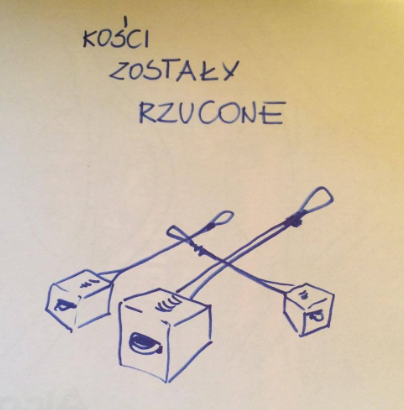 KOŚCI
ZOSTAŁY
RZUCONE